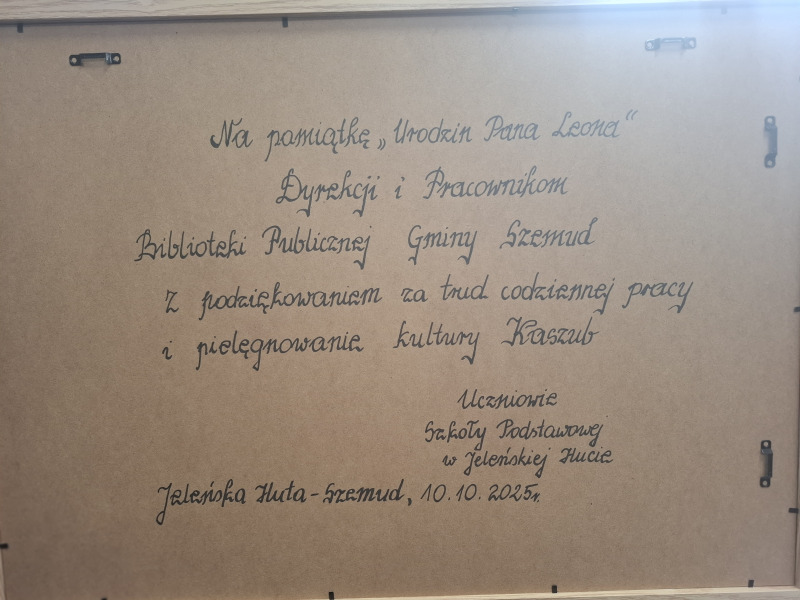 Na pamiątkę „Urodzin Pana Leona"
Dyrekcji i Pracownikom
Biblioteki Publicznej Gminy Szemud
z podziękowaniem za trud codziennej pracy
i pielęgnowanie kultury Kaszub
Uczniowie
Szkoły Podstawowej
w Jeleńskiej Hucie
Jeleńska Huta - Szemud, 10.10.2025r.